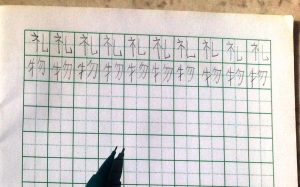 礼礼礼礼礼礼礼礼礼礼
物物物物物物物物物物